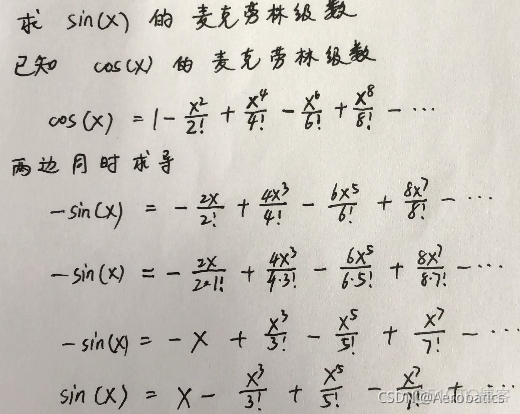 求 sin(x) 的麦克劳林级数
已知 cos(x) 的麦克劳林级数
cos(x) = 1 - x²/2! + x⁴/4! - x⁶/6! + x⁸/8! - ⋯
两边同时求导
-sin(x) = - 2x/2! + 4x³/4! - 6x⁵/6! + 8x⁷/8! - ⋯
-sin(x) = - 2x/2·1! + 4x³/4·3! - 6x⁵/6·5! + 8x⁷/8·7! - ⋯
-sin(x) = - x + x³/3! - x⁵/5! + x⁷/7! - ⋯
sin(x) = x - x³/3! + x⁵/5! - x⁷/7! + ⋯
CSDN @Aerobatics